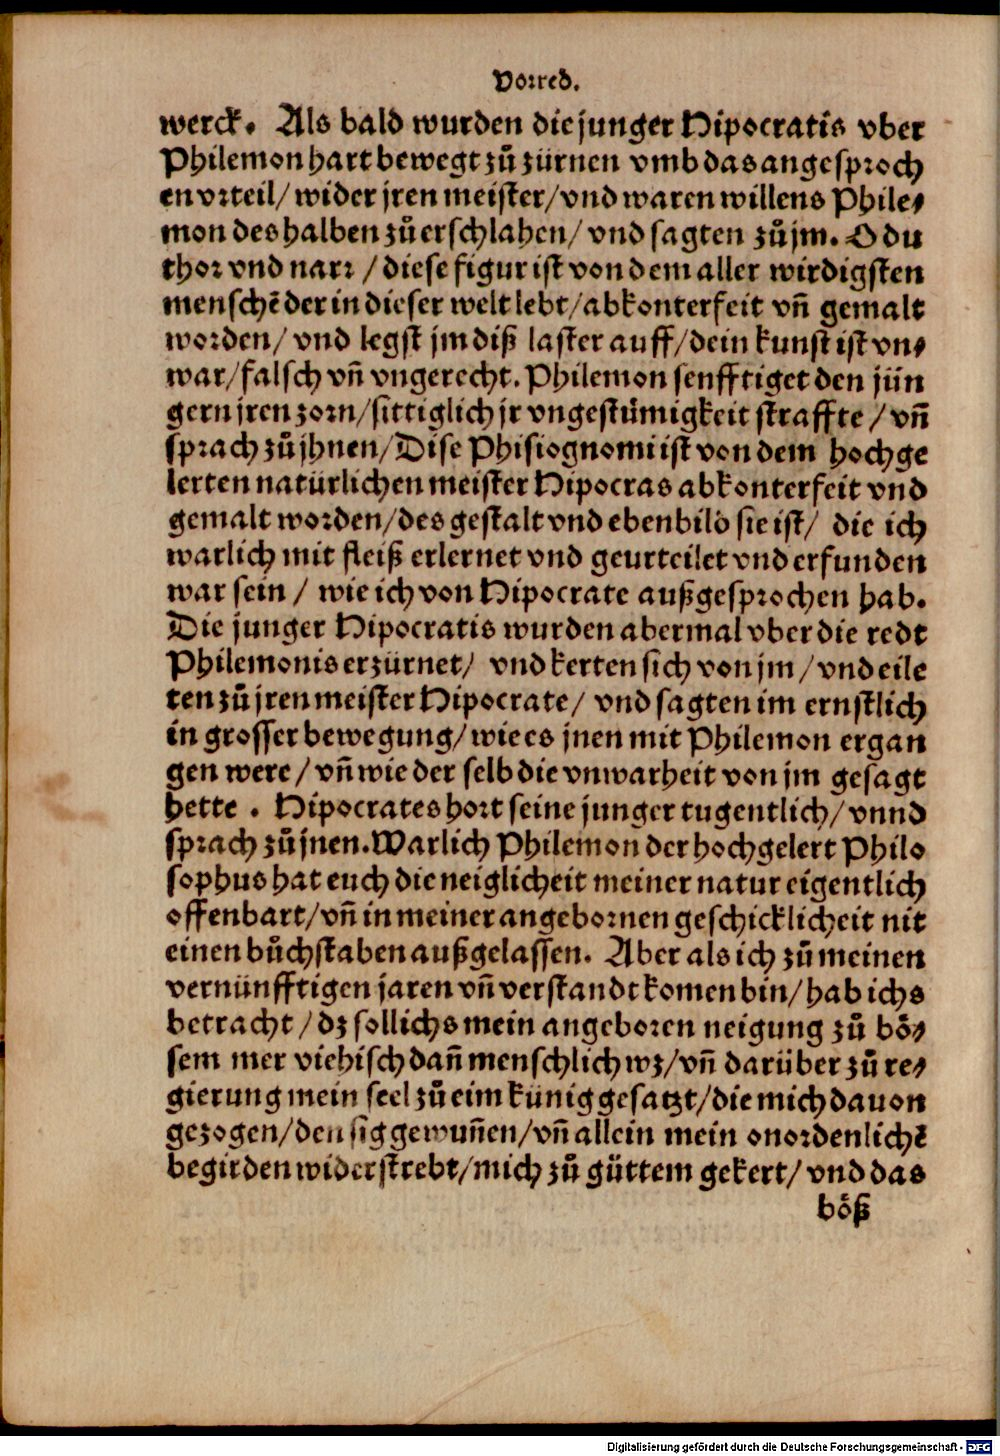 Vorred.
werck. Als bald wurden die junger Hipocratis vber
Philemon hart bewegt zů zürnen vmb das angesproch
en vrteil/ wider jren meister/ vnd waren willens Phile⸗
mon des halben zů erschlahen/ vnd sagten zů jm. O du
thor vnd narr / diese figur ist von dem aller wirdigsten
menschē der in dieser welt lebt/ abkonterfeit vñ gemalt
worden/ vnd legst jm diß laster auff/ dein kunst ist vn⸗
war/ falsch vñ vngerecht. Philemon senfftiget den jün
gern jren zorn/ sittiglich jr vngestümigkeit straffte / vñ
sprach zů jhnen/ Dise Phisiognomi ist von dem hochge
lerten natürlichen meister Hipocras abkonterfeit vnd
gemalt worden/ des gestalt vnd ebenbild sie ist/ die ich
warlich mit fleiß erlernet vnd geurteilet vnd erfunden
war sein / wie ich von Hipocrate außgesprochen hab.
Die junger Hipocratis wurden abermal vber die redt
Philemonis erzürnet/ vnd kerten sich von jm / vnd eile
ten zů jren meister Hipocrate/ vnd sagten im ernstlich
in grosser bewegung/ wie es jnen mit Philemon ergan
gen were / vñ wie der selb die vnwarheit von jm gesagt
hette . Hipocrates hort seine junger tugentlich/ vnnd
sprach zů jnen. Warlich Philemon der hochgelert Philo
sophus hat euch die neiglicheit meiner natur eigentlich
offenbart/ vñ in meiner angebornen geschicklicheit nit
einen bůchstaben außgelassen. Aber als ich zů meinen
vernünfftigen jaren vñ verstandt komen bin/ hab ichs
betracht / dz sollichs mein angeboren neigung zů bö⸗
sem mer viehisch dañ menschlich wz/ vñ darüber zů re⸗
gierung mein seel zů eim künig gesatzt/ die mich dauon
gezogen/ den sig gewuñen/ vñ allein mein onordenlichē
begirden widerstrebt/ mich zů güttem gekert/ vnd das
böß
Digitalisierung gefördert durch die Deutsche Forschungsgemeinschaft - DFG